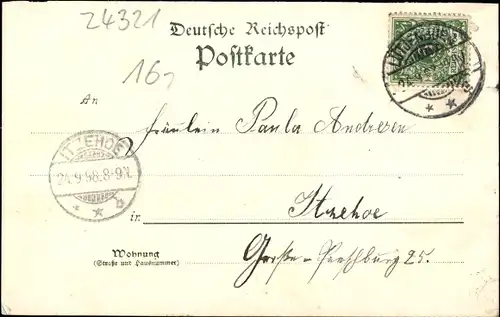 24321
Deutsche Reichspost
Postkarte
16,
An
Fräulein Paula Andresen
ITZEHOE
24.9.98.8-9N.
in Itzehoe
Wohnung
(Straße und Hausnummer)
Große 25.